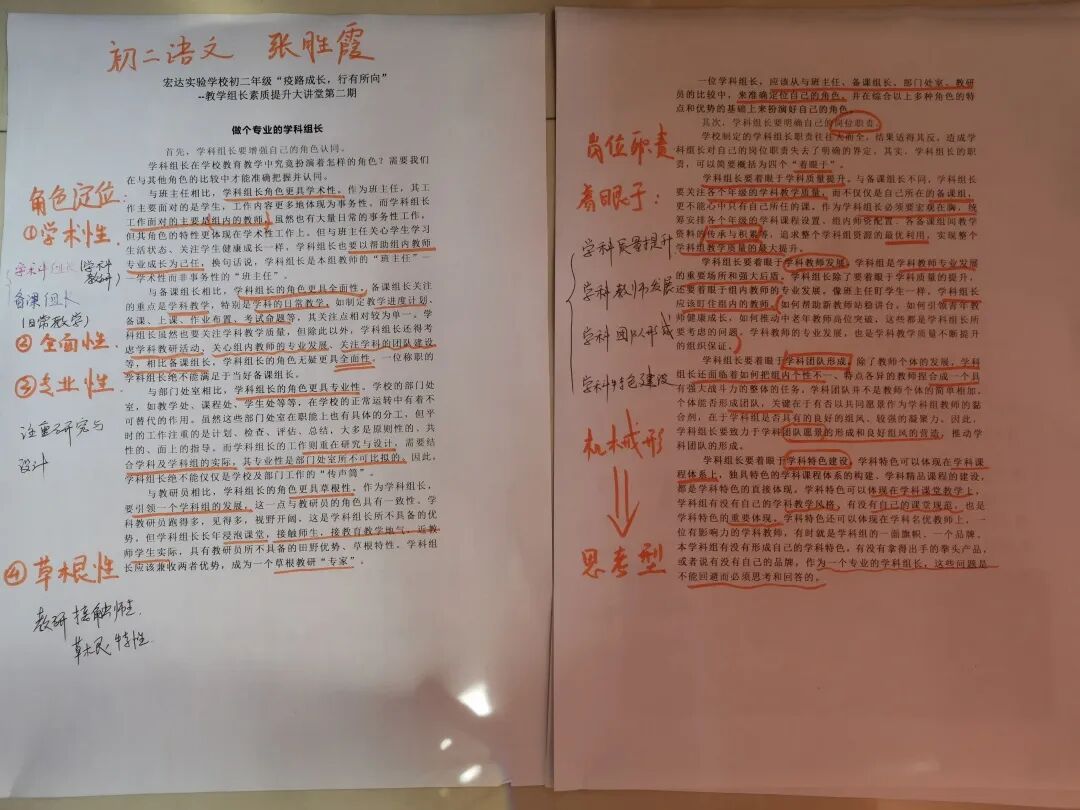 初二语文 张胜霞
宏达实验学校初二年级“疫路成长，行有所向”
--教学组长素质提升大讲堂第二期
做个专业的学科组长
首先，学科组长要增强自己的角色认同。
学科组长在学校教育教学中究竟扮演着怎样的角色？需要我们
在与其他角色的比较中才能准确把握并认同。
与班主任相比，学科组长角色更具学术性。作为班主任，其工
作主要面对的是学生，工作内容更多地体现为事务性。而学科组长
工作面对的主要是组内的教师，虽然也有大量日常的事务性工作，
但其角色的特性更体现在学术性工作上。但与班主任关心学生学习
生活状态、关注学生健康成长一样，学科组长也要以帮助组内教师
专业成长为己任，换句话说，学科组长是本组教师的“班主任”—
—学术性而非事务性的“班主任”。
与备课组长相比，学科组长的角色更具全面性。备课组长关注
的重点是学科教学，特别是学科的日常教学，如制定教学进度计划、
备课、上课、作业布置、考试命题等，其关注点相对较为单一。学
科组长虽然也要关注学科教学质量，但除此以外，学科组长还得考
虑学科教研活动、关心组内教师的专业发展、关注学科的团队建设
等，相比备课组长，学科组长的角色无疑更具全面性。一位称职的
学科组长绝不能满足于当好备课组长。
与部门处室相比，学科组长的角色更具专业性。学校的部门处
室，如教学处、课程处、学生处等等，在学校的正常运转中有着不
可替代的作用。虽然这些部门处室在职能上也有具体的分工，但平
时的工作注重的是计划、检查、评估、总结，大多是原则性的、共
性的、面上的指导。而学科组长的工作则重在研究与设计，需要结
合学科及学科组的实际，其专业性是部门处室所不可比拟的。因此，
学科组长绝不能仅仅是学校及部门工作的“传声筒”。
与教研员相比，学科组长的角色更具草根性。作为学科组长，
要引领一个学科组的发展，这一点与教研员的角色具有一致性。学
科教研员跑得多，见得多，视野开阔，这是学科组长所不具备的优
势。但学科组长长年浸泡课堂，接触师生，接教育教学地气，近教
师学生实际，具有教研员所不具备的田野优势、草根特性。学科组
长应该兼收两者优势，成为一个草根教研“专家”。
角色定位：
①学术性
学科组长(学科教研)
备课组长
(日常教学)
②全面性
③专业性
注重研究与
设计
④草根性
教研 接触师生
草根特性
一位学科组长，应该从与班主任、备课组长、部门处室、教研
员的比较中，来准确定位自己的角色，并在综合以上多种角色的特
点和优势的基础上来扮演好自己的角色。
其次，学科组长要明确自己的岗位职责。
学校制定的学科组长职责往往大而全，结果适得其反，造成学
科组长对自己的岗位职责失去了明确的界定。其实，学科组长的职
责，可以简要概括为四个“着眼于”。
学科组长要着眼于学科质量提升。与备课组长不同，学科组长
要关注各个年级的学科教学质量，而不仅仅是自己所在的备课组，
更不能心中只有自己所任的课。作为学科组长必须要宏观在胸，统
筹安排各个年级的学科课程设置、组内师资配置、各备课组间教学
资料的传承与积累等，追求整个学科组资源的最优利用，实现整个
学科组教学质量的最大提升。
学科组长要着眼于学科教师发展。学科组是学科教师专业发展
的重要场所和强大后盾。学科组长除了要着眼于学科质量的提升，
还要着眼于组内教师的专业发展。像班主任盯学生一样，学科组长
应该盯住组内的教师。如何帮助新教师站稳讲台，如何引领青年教
师健康成长，如何推动中老年教师高位突破，这些都是学科组长所
要考虑的问题。学科教师的专业发展，也是学科教学质量不断提升
的组织保证。
学科组长要着眼于学科团队形成。除了教师个体的发展，学科
组长还面临着如何把组内个性不一、特点各异的教师捏合成一个具
有强大战斗力的整体的任务，学科团队并不是教师个体的简单相加，
个体能否形成团队，关键在于有否以共同愿景作为学科组教师的黏
合剂，在于学科组是否具有的良好的组风、较强的凝聚力。因此，
学科组长要致力于学科团队愿景的形成和良好组风的营造，推动学
科团队的形成。
学科组长要着眼于学科特色建设。学科特色可以体现在学科课
程体系上，独具特色的学科课程体系的构建、学科精品课程的建设，
都是学科特色的直接体现。学科特色可以体现在学科课堂教学上，
学科组有没有自己的学科教学风格，有没有自己的课堂规范，也是
学科特色的重要体现。学科特色还可以体现在学科名优教师上，一
位有影响力的学科教师，有时就是学科组的一面旗帜，一个品牌。
本学科组有没有形成自己的学科特色，有没有拿得出手的拳头产品，
或者说有没有自己的品牌，作为一个专业的学科组长，这些问题是
不能回避而必须思考和回答的。
岗位职责
着眼于：
学科质量提升
学科教师发展
学科团队形成
学科特色建设
机械形
思考型